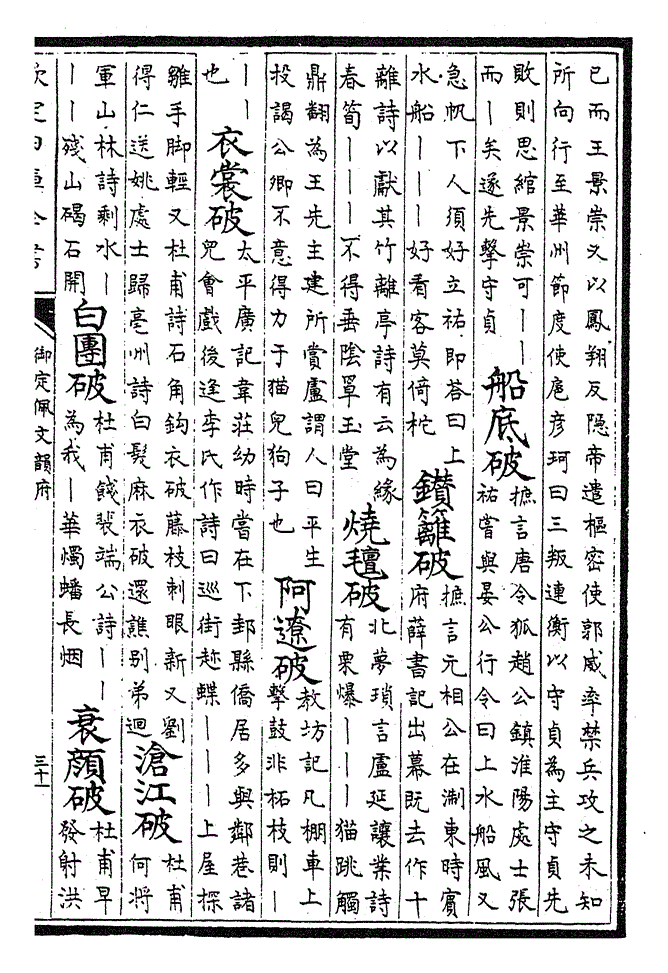 已而王景崇又以鳳翔反隱帝遣樞密使郭威率禁兵攻之未知
所向行至華州節度使扈彦珂曰三叛連衡以守貞為主守貞先
敗則思綰景崇可――
而―矣遂先擊守貞
船底破
摭言唐令狐趙公鎮淮陽處士張
祐嘗與晏公行令曰上水船風又
急帆下人須好立祐即荅曰上
水船―――好看客莫倚柁
鑚籬破
摭言元相公在淛東時賓
府薛書記出幕既去作十
離詩以獻其竹離亭詩有云為緣
春筍―――不得垂陰罩玉堂
燒氊破
北夢瑣言盧延讓業詩
有栗爆―――猫跳觸
鼎翻為王先主建所賞盧謂人曰平生
投謁公卿不意得力于猫兒狗子也
阿遼破
教坊記凡棚車上
擊鼓非柘枝則―
――
也
衣裳破
太平廣記韋莊幼時嘗在下邽縣僑居多與鄰巷諸
兒會戲後逢李氏作詩曰巡街趂蝶―――上屋探
雛手脚輕又杜甫詩石角鈎衣破藤枝刺眼新又劉
得仁送姚處士歸亳州詩白髮麻衣破還譙别弟迴
滄江破
杜甫
何將
軍山林詩剩水―
――殘山碣石開
白團破
杜甫餞裴端公詩――
為我―華燭蟠長烟
衰顔破
杜甫早
發射洪
欽定四庫全書
御定佩文韻府
三十一